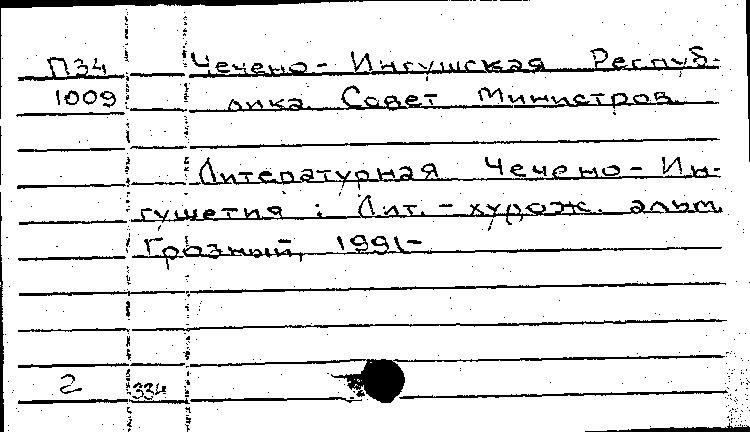 П34 Чечено-Ингушская Респуб-
1009 лика. Совет Министров.
Литературная Чечено-Ин-
гушетия : Лит.-худож. альм.
Грозный, 1991-
2 334